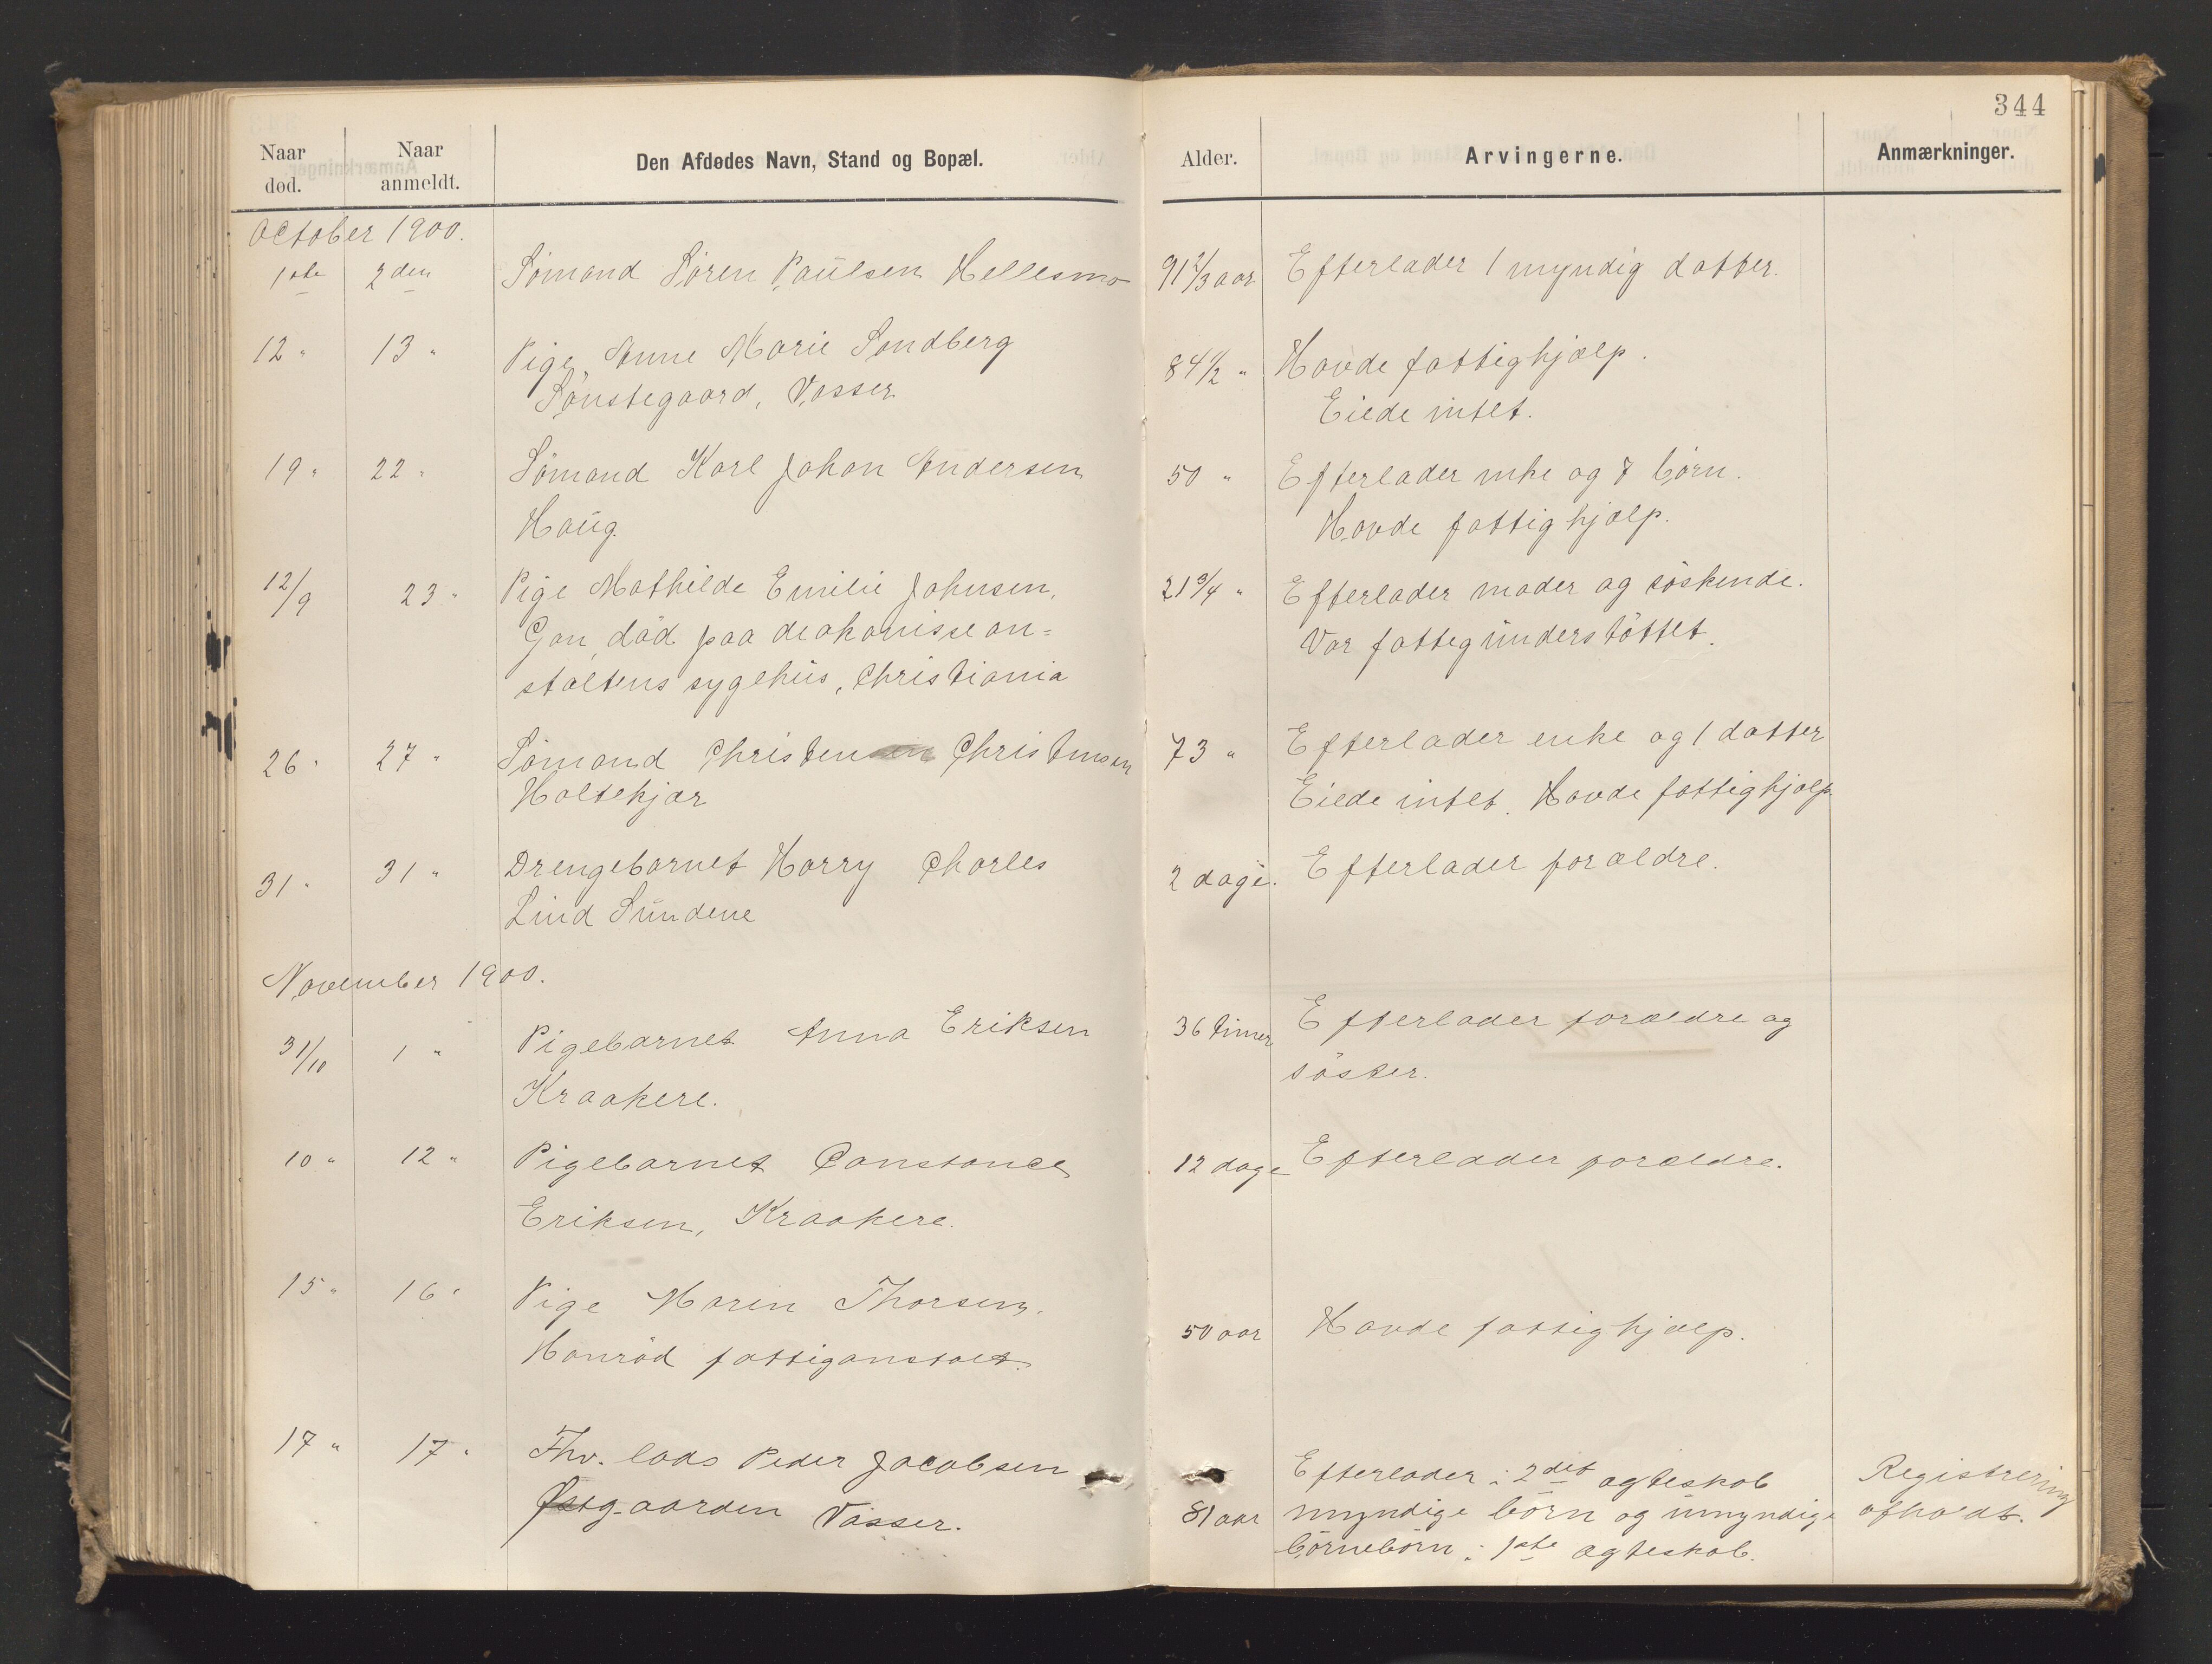 344
Naar død.
Naar anmeldt.
Den Afdødes Navn, Stand og Bopæl.
Alder.
Arvingerne.
Anmærkninger.
October 1900.
1ste 2den Sömand Sören Paulsen Hellesmo 91 2/3 aar Efterlader 1 myndig datter.
12 " 13 " Pige Anne Marie Sandberg 84 1/2 " Havde fattighjælp.
Sönstegaard, Vasser Eiede intet.
19 " 22 " Sömand Karl Johan Andersen 50 " Efterlader enke og 7 börn.
Haug. Havde fattighjælp.
12/9 23 " Pige Mathilde Emilie Johnsen, 21 3/4 " Efterlader moder og söskende.
Gon, död paa deakonissean= Var fattegunderstöttet.
staltens sygehus, Christiania
26 " 27 " Sömand Christen Christensen 73 " Efterlader enke og 1 datter
Holtekjær Eiede intet. Havde fattighjælp
31 " 31 " Drengebarnet Harry Charles 2 dage. Efterlader forældre.
Lind Sundene
November 1900.
31/10 1 " Pigebarnet Anna Eriksen 36 timer Efterlader forældre og
Kraakere. söster.
10 " 12 " Pigebarnet Constance 12 dage Efterlader forældre.
Eriksen, Kraakere.
15 " 16 " Pige Maren Thorsen, 50 aar Havde fattighjælp.
Hanröd fattiganstalt.
17 " 17 " Fhv. lods Peder Jacobsen Efterlader i 2det ægteskab Registrering
Østgaarden Vasser. 81 aar myndige börn og umyndige afholdt.
börnebörn i 1ste ægteskab.